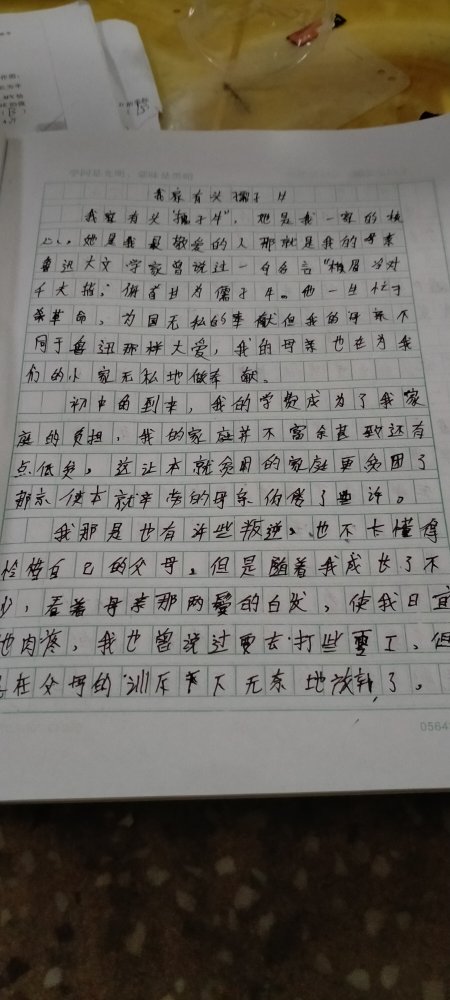 学问是光明，蒙昧是黑暗
我家有父孺子牛
我家有父"孺子牛"，她是我一家的核
心，她是我最敬爱的人那就是我的母亲
鲁迅大文学家曾说过一句名言"横眉冷对
千夫指，俯首甘为孺子牛。他一生忙于
革命，为国无私的奉献但我的母亲不
同于鲁迅那样大爱，我的母亲也在为我
们的小家无私地做奉献。
初中的到来，我的学费成为了我家
庭的负担，我的家庭并不富余甚至还有
点低贫，这让本就贫困的家庭更贫困了
那就使本就辛劳的母亲伤感了些许。
我那是也有许些叛逆，也不太懂得
自己的父母。但是随着我成长了不
少，看着母亲那两鬓的白发，使我日
也肉疼，我也曾说过要去打些零工，但
在父母的训斥下无奈地放弃了。
0564